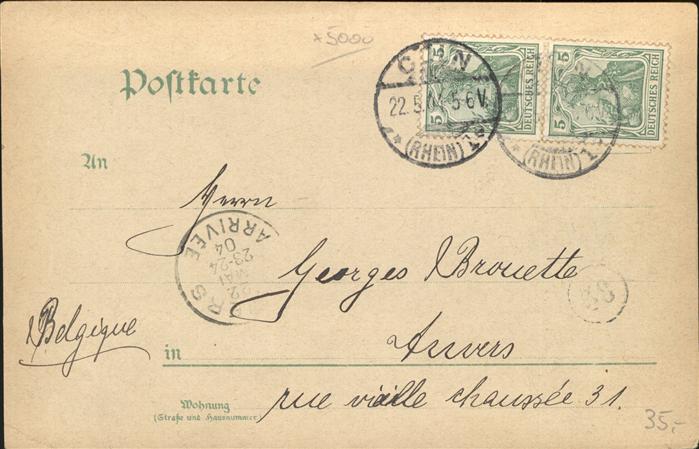 +5000
5 5
DEUTSCHES REICH
DEUTSCHES REICH
CÖLN
22.5.04 5-6V.
* (RHEIN) 1
* (RHEIN) 1
Postkarte
An
Herrn
ARRIVÉE
04
23-24
MAI
22
RS
Georges Brouette
Belgique
in
Anvers
Wohnung
(Straße und Hausnummer)
rue vieille chaussée 31.
35,-